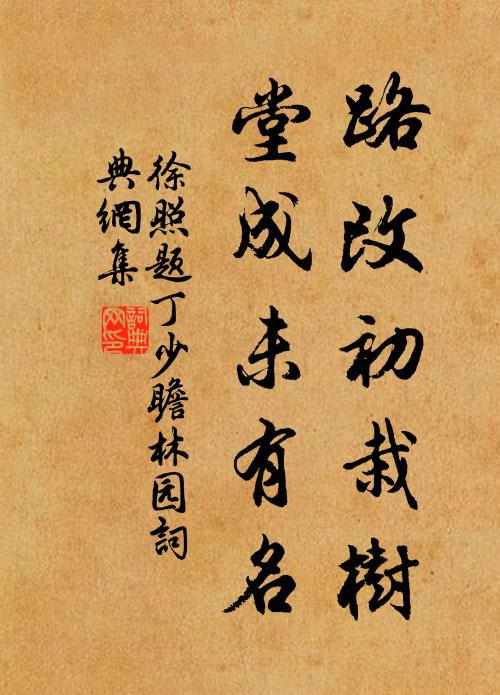 路改初栽樹
堂成未有名
徐照题丁少瞻林园詞
典網集
詞典网印